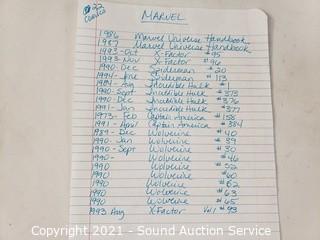 22
Comics
MARVEL
1986 Marvel Universe Handbook
1987 Marvel Universe Handbook
1993-Oct X-Factor #95
1993-Nov X-Factor #96
1990-Dec Spiderman #20
1994-June Spiderman #113
Aug Incredible Hulk #1
1990-Sept Incredible Hulk #373
1990-Dec Incredible Hulk #376
1991-Jan Incredible Hulk #377
1973-Feb Captain America #158
1991-April Captain America #384
1989-Dec Wolverine #40
1990-Jan Wolverine #39
1990-Sept Wolverine #30
1990- Wolverine #46
1990 Wolverine #52
1990 Wolverine #60
1990 Wolverine #62
1990 Wolverine #63
1990 Wolverine #65
1993 Aug X-Factor Vol 1 #93
Copyright 2021 - Sound Auction Service